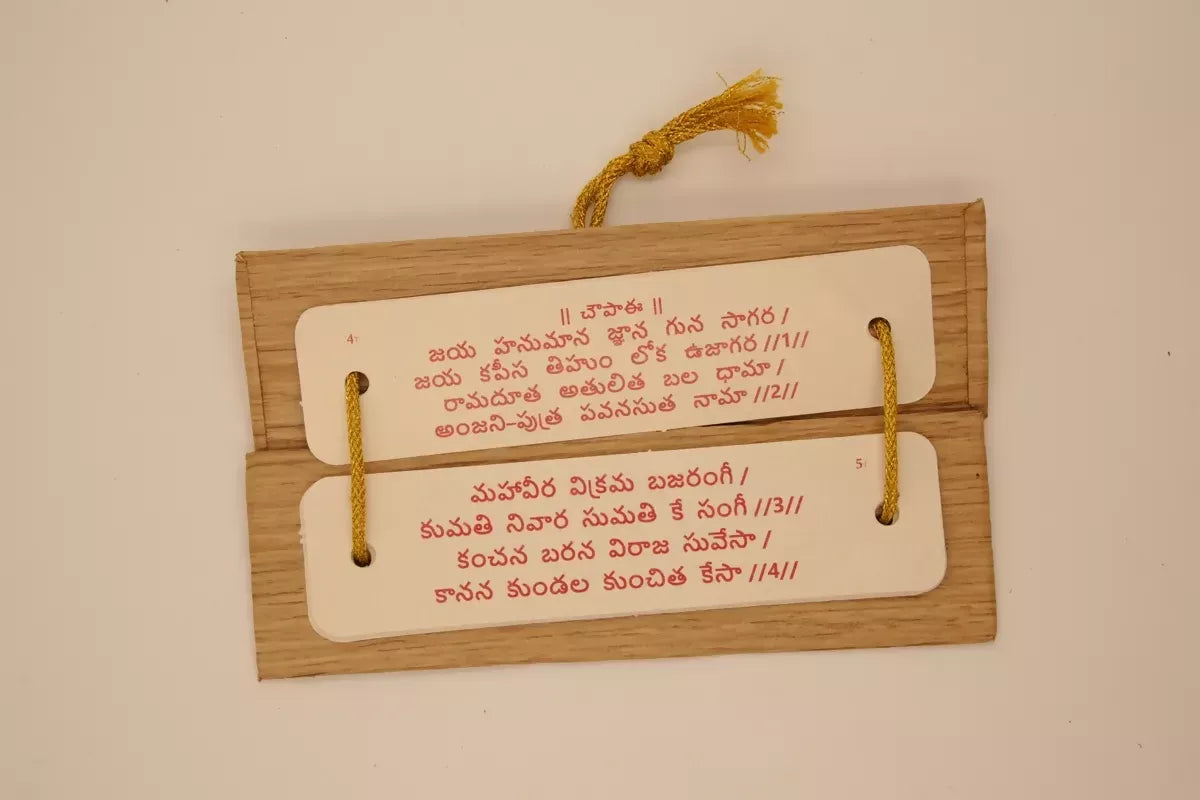 4
|| చౌపాఈ ||
జయ హనుమాన జ్ఞాన గున సాగర /
జయ కపీస తిహుం లోక ఉజాగర //1//
రామదూత అతులిత బల ధామా /
అంజని-పుత్ర పవనసుత నామా //2//
5
మహావీర విక్రమ బజరంగీ /
కుమతి నివార సుమతి కే సంగీ //3//
కంచన బరన విరాజ సువేసా /
కానన కుండల కుంచిత కేసా //4//